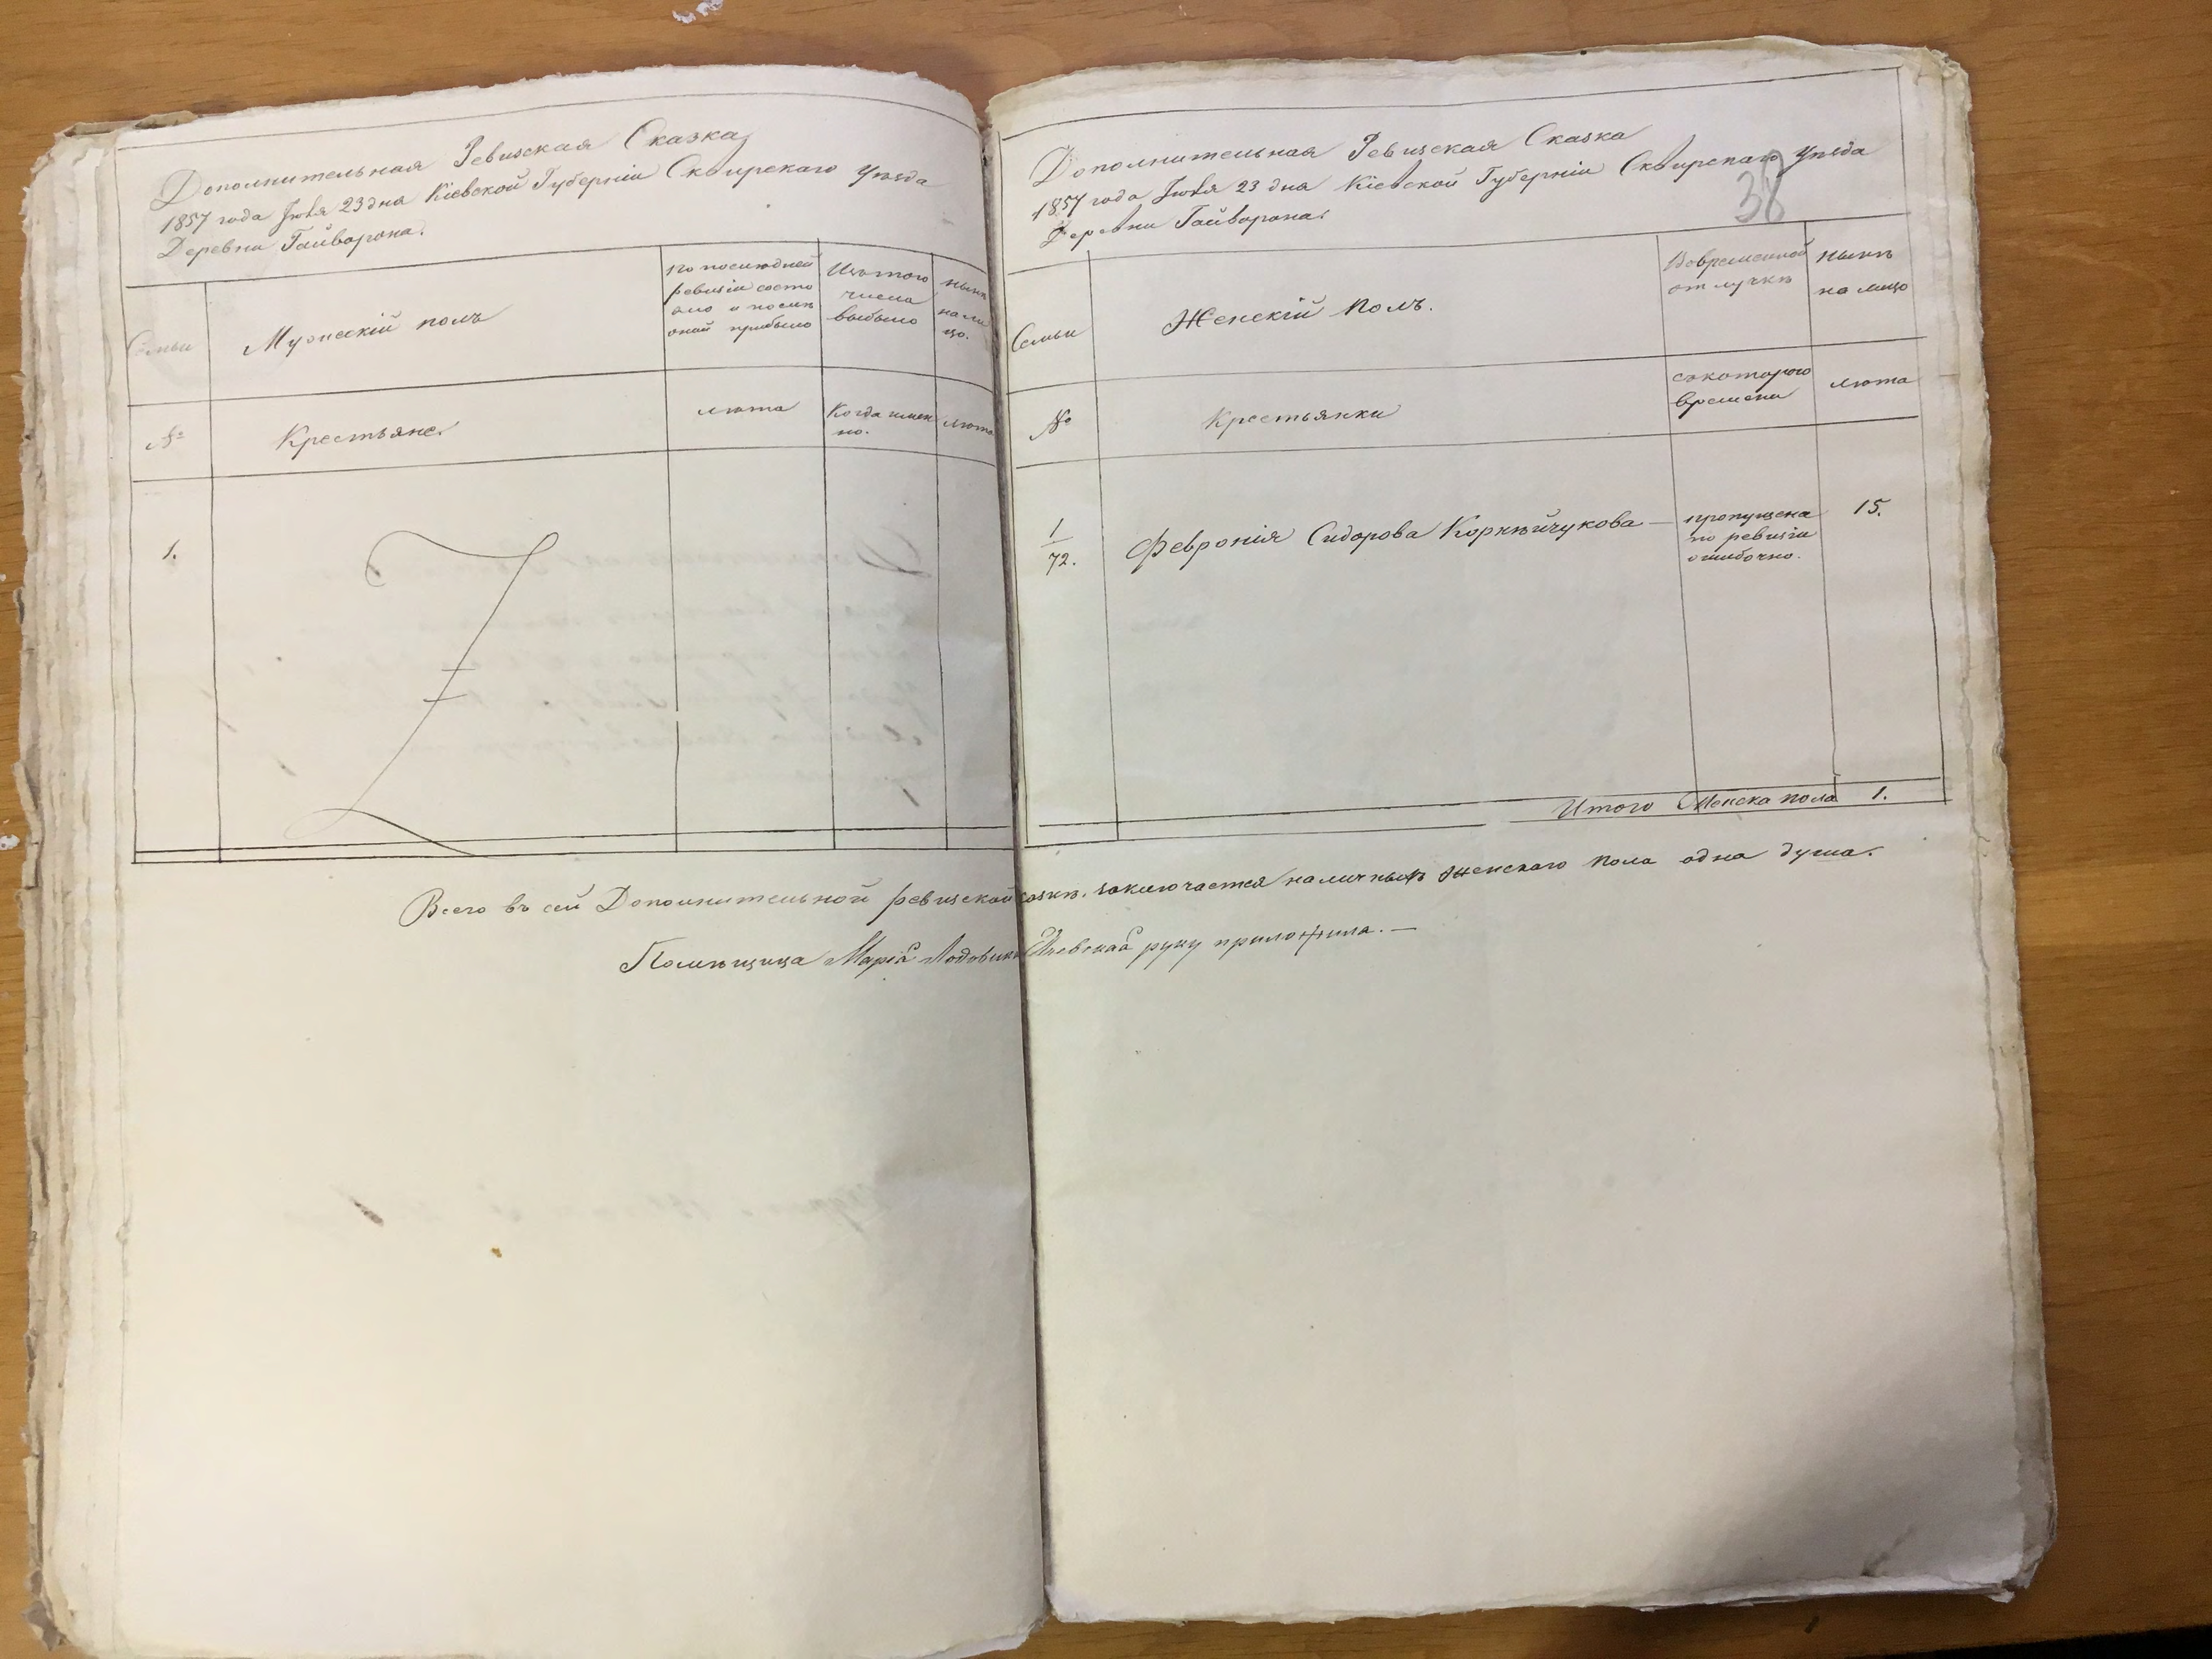 Дополнительная Ревизская Сказка
1857 года Іюля 23 дна Кіевской Губерніи Сквирскаго Уѣзда
Деревни Гайворона.
Семьи
Мужескій полъ
По послѣдней
ревизіи состо
яло и послѣ
оной прибыло
Изътого
числа
выбыло
Нынѣ
на ли
цо.
№
Крестьяне
лѣта
Когда имен
но.
лѣта
1.
Дополнительная Ревизская Сказка
1857 года Іюля 23 дна Кіевской Губерніи Сквирскаго Уѣзда
Деревни Гайворона.
38
Семьи
Женскій Полъ.
Вовременной
отлучкѣ
Нынѣ
на лицо
№
Крестьянки
сѣкоторого
времени
лѣта
1
72.
Февронія Сидорова Корнѣйчукова —
пропущена
по ревизіи
ошибочно.
15.
Итого Женска пола 1.
Всего въ сей Дополнительной ревизской сказкѣ заключается наличныхъ Женскаго пола одна душа.
Помѣщица Марія руку приложила. —